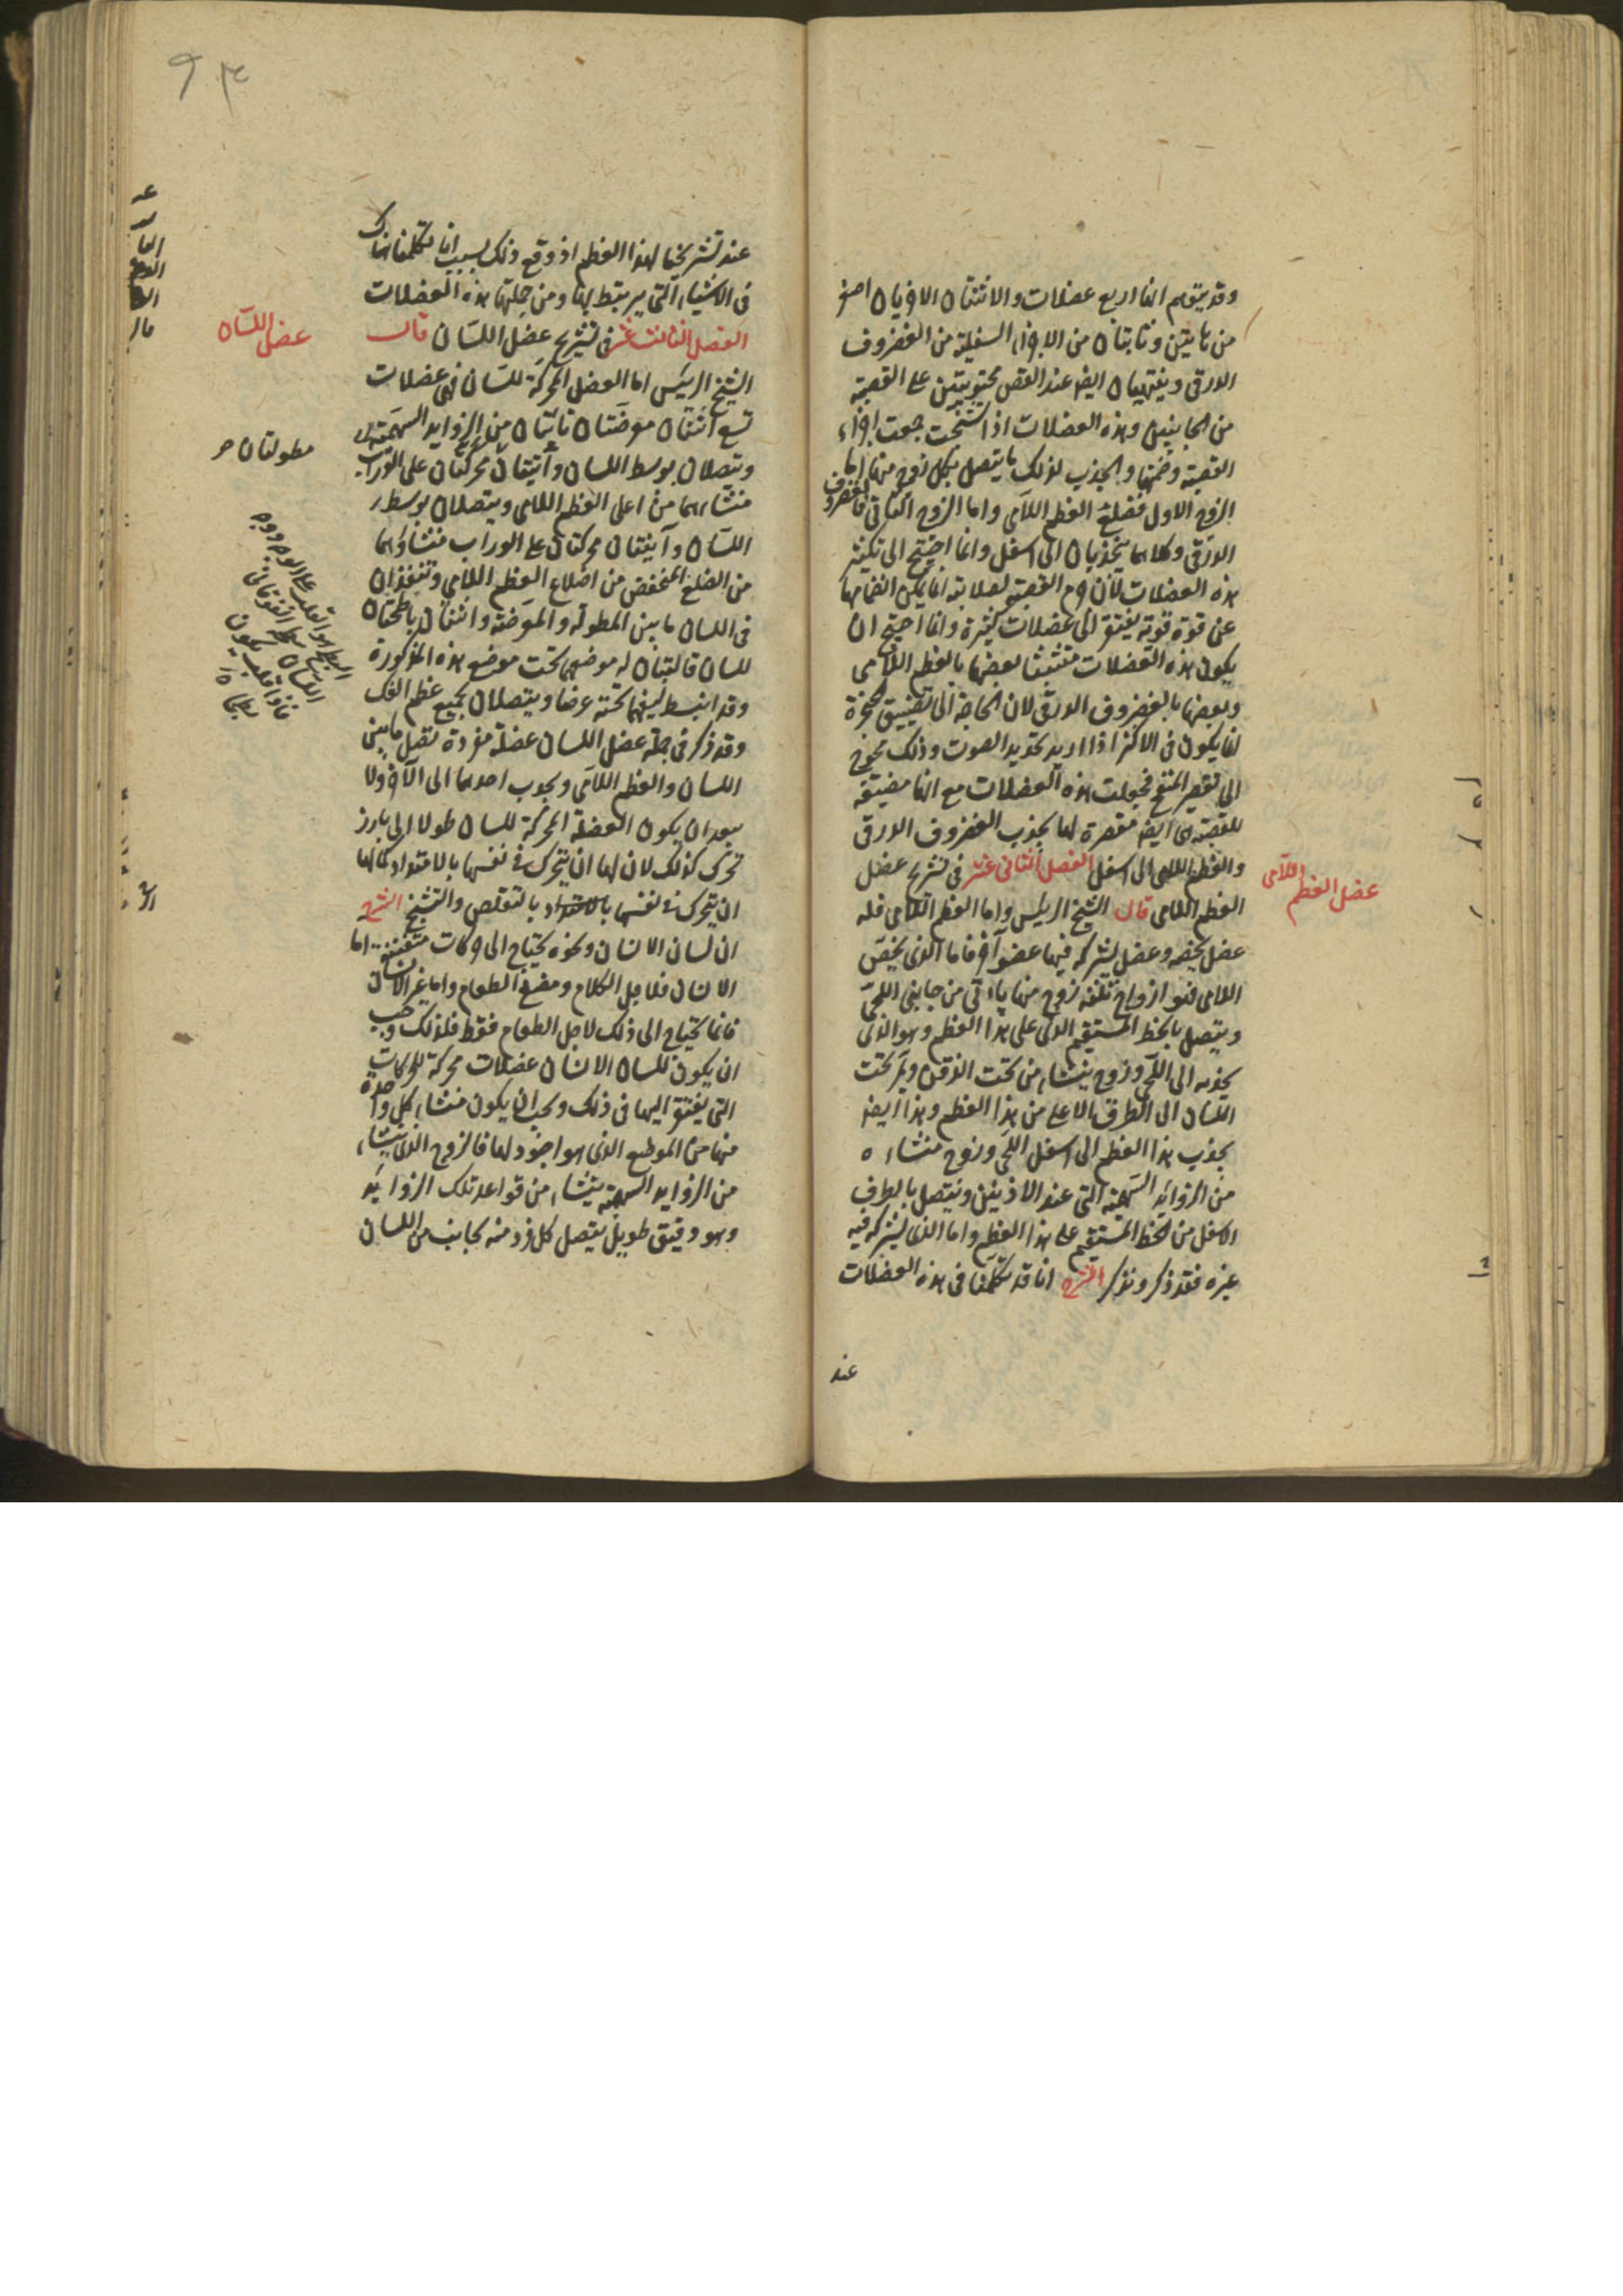 وقد يتوهم انها اربع عضلات والاثنتان الاخريان اصغر
من هاتين ونابتتان من الاجزاء السفلية من الغضروف
الدرقى وينتهيان ايضا عند القص محتويتين على القصبة
من الجانبين وهذه العضلات اذا تشنجت جمعت اجزاء
القصبة وضمتها والجذب لذلك ما يتصل بكل زوج منها اما
الزوج الاول فضلع العظم اللامى واما الزوج الثانى فالغضروف
الدرقى وكلاهما يجذبان الى اسفل وانما احتيج الى تكثير
هذه العضلات لان جرم القصبة لصلابته انما يمكن انضمامها
عن قوة قوية يفتقر الى عضلات كثيرة وانما احتيج ان
يكون هذه العضلات متشبثا بعضها بالعظم اللامى
وبعضها بالغضروف الدرقى لان الحاجة الى تضييق الحنجرة
انما يكون فى الاكثر اذا اريد تحديد الصوت وذلك محوج
الى تقصير المنفخ فجعلت هذه العضلات مع انها مضيقة
للقصبة هى ايضا مقصرة لها بجذب الغضروف الدرقى
والعظم اللامى الى اسفل الفصل الثانى عشر فى تشريح عضل
عضل العظم اللامى
العظم اللامى قال الشيخ الرئيس واما العظم اللامى فله
عضل يخصه وعضل يشركه فيها عضو آخر فاما الذى يخص
اللامى فهو ازواج ثلثة زوج منها ياتى من جانبى اللحى
ويتصل بالخط المستقيم الذى على هذا العظم وهو الذى
يجذبه الى اللحى وزوج ينشاء من تحت الذقن ويمر تحت
اللسان الى الطرف الاعلى من هذا العظم وهذا ايضا
يجذب هذا العظم الى اسفل اللحى وزوج منشاءه
من الزوائد السهمية التى عند الاذنين ويتصل بالطرف
الاسفل من الخط المستقيم على هذا العظم واما الذى يشركه فيه
غيره فقد ذكر ونذكر الشرح انا قد تكلمنا فى هذه العضلات
عند
عند تشريحنا لهذا العظم اذ وقع ذلك بسبب انا تكلمنا هناك
فى الاشياء التى يرتبط بها ومن جملتها هذه العضلات
الفصل الثالث عشر فى تشريح عضل اللسان قال
عضل اللسان
الشيخ الرئيس اما العضل المحركة للسان فهى عضلات
تسع اثنتان معرضتان ناتيتان من الزوايد السهمية
ويتصلان بوسط اللسان واثنتان محركتان على الوراب
مطولتان
منشاءهما من اعلى العظم اللامى ويتصلان بوسط
اللسان واثنتان محركتان على الوراب منشاؤهما
من الضلع المنخفض من اضلاع العظم اللامى وتنفذان
فى اللسان ما بين المطولة والمعرضة واثنتان باطحتان
للسان قالبتان له موضعهما تحت موضع هذه المذكورة
وقد انبسط ليفهما تحته عرضا ويتصلان بجميع عظم الفك
وقد ذكر فى جملة عضل اللسان عضلة مفردة تصل ما بين
اللسان والعظم اللامى ويجذب احدهما الى الآخر ولا
يبعد ان يكون العضلة المحركة للسان طولا الى بارز
تحرك كذلك لان لها ان يتحرك فى نفسها بالامتداد كما لها
ان يتحرك فى نفسها بالامتداد بالتقلص والتشنج الشرح
ان لسان الانسان ونحوه يحتاج الى حركات متفننة اما
الانسان فلاجل الكلام ومضغ الطعام واما غير الانسان
فانما يحتاج الى ذلك لاجل الطعام فقط فلذلك وجب
ان يكون للسان الانسان عضلات محركة للحركات
التى يفتقر اليها فى ذلك ويجب ان يكون منشاء كل واحدة
منها من الموضع الذى هو اجود لها فالزوج الذى ينشاء
من الزوايد السهمية ينشاء من قواعد تلك الزوايد
وهو دقيق طويل يتصل كل فرد منه بجانب من اللسان